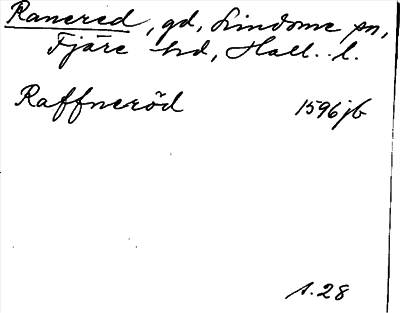 Ranered, gd, Lindome sn,
Fjäre hd, Hall. l.
Raffneröd 1596 jb
s. 28